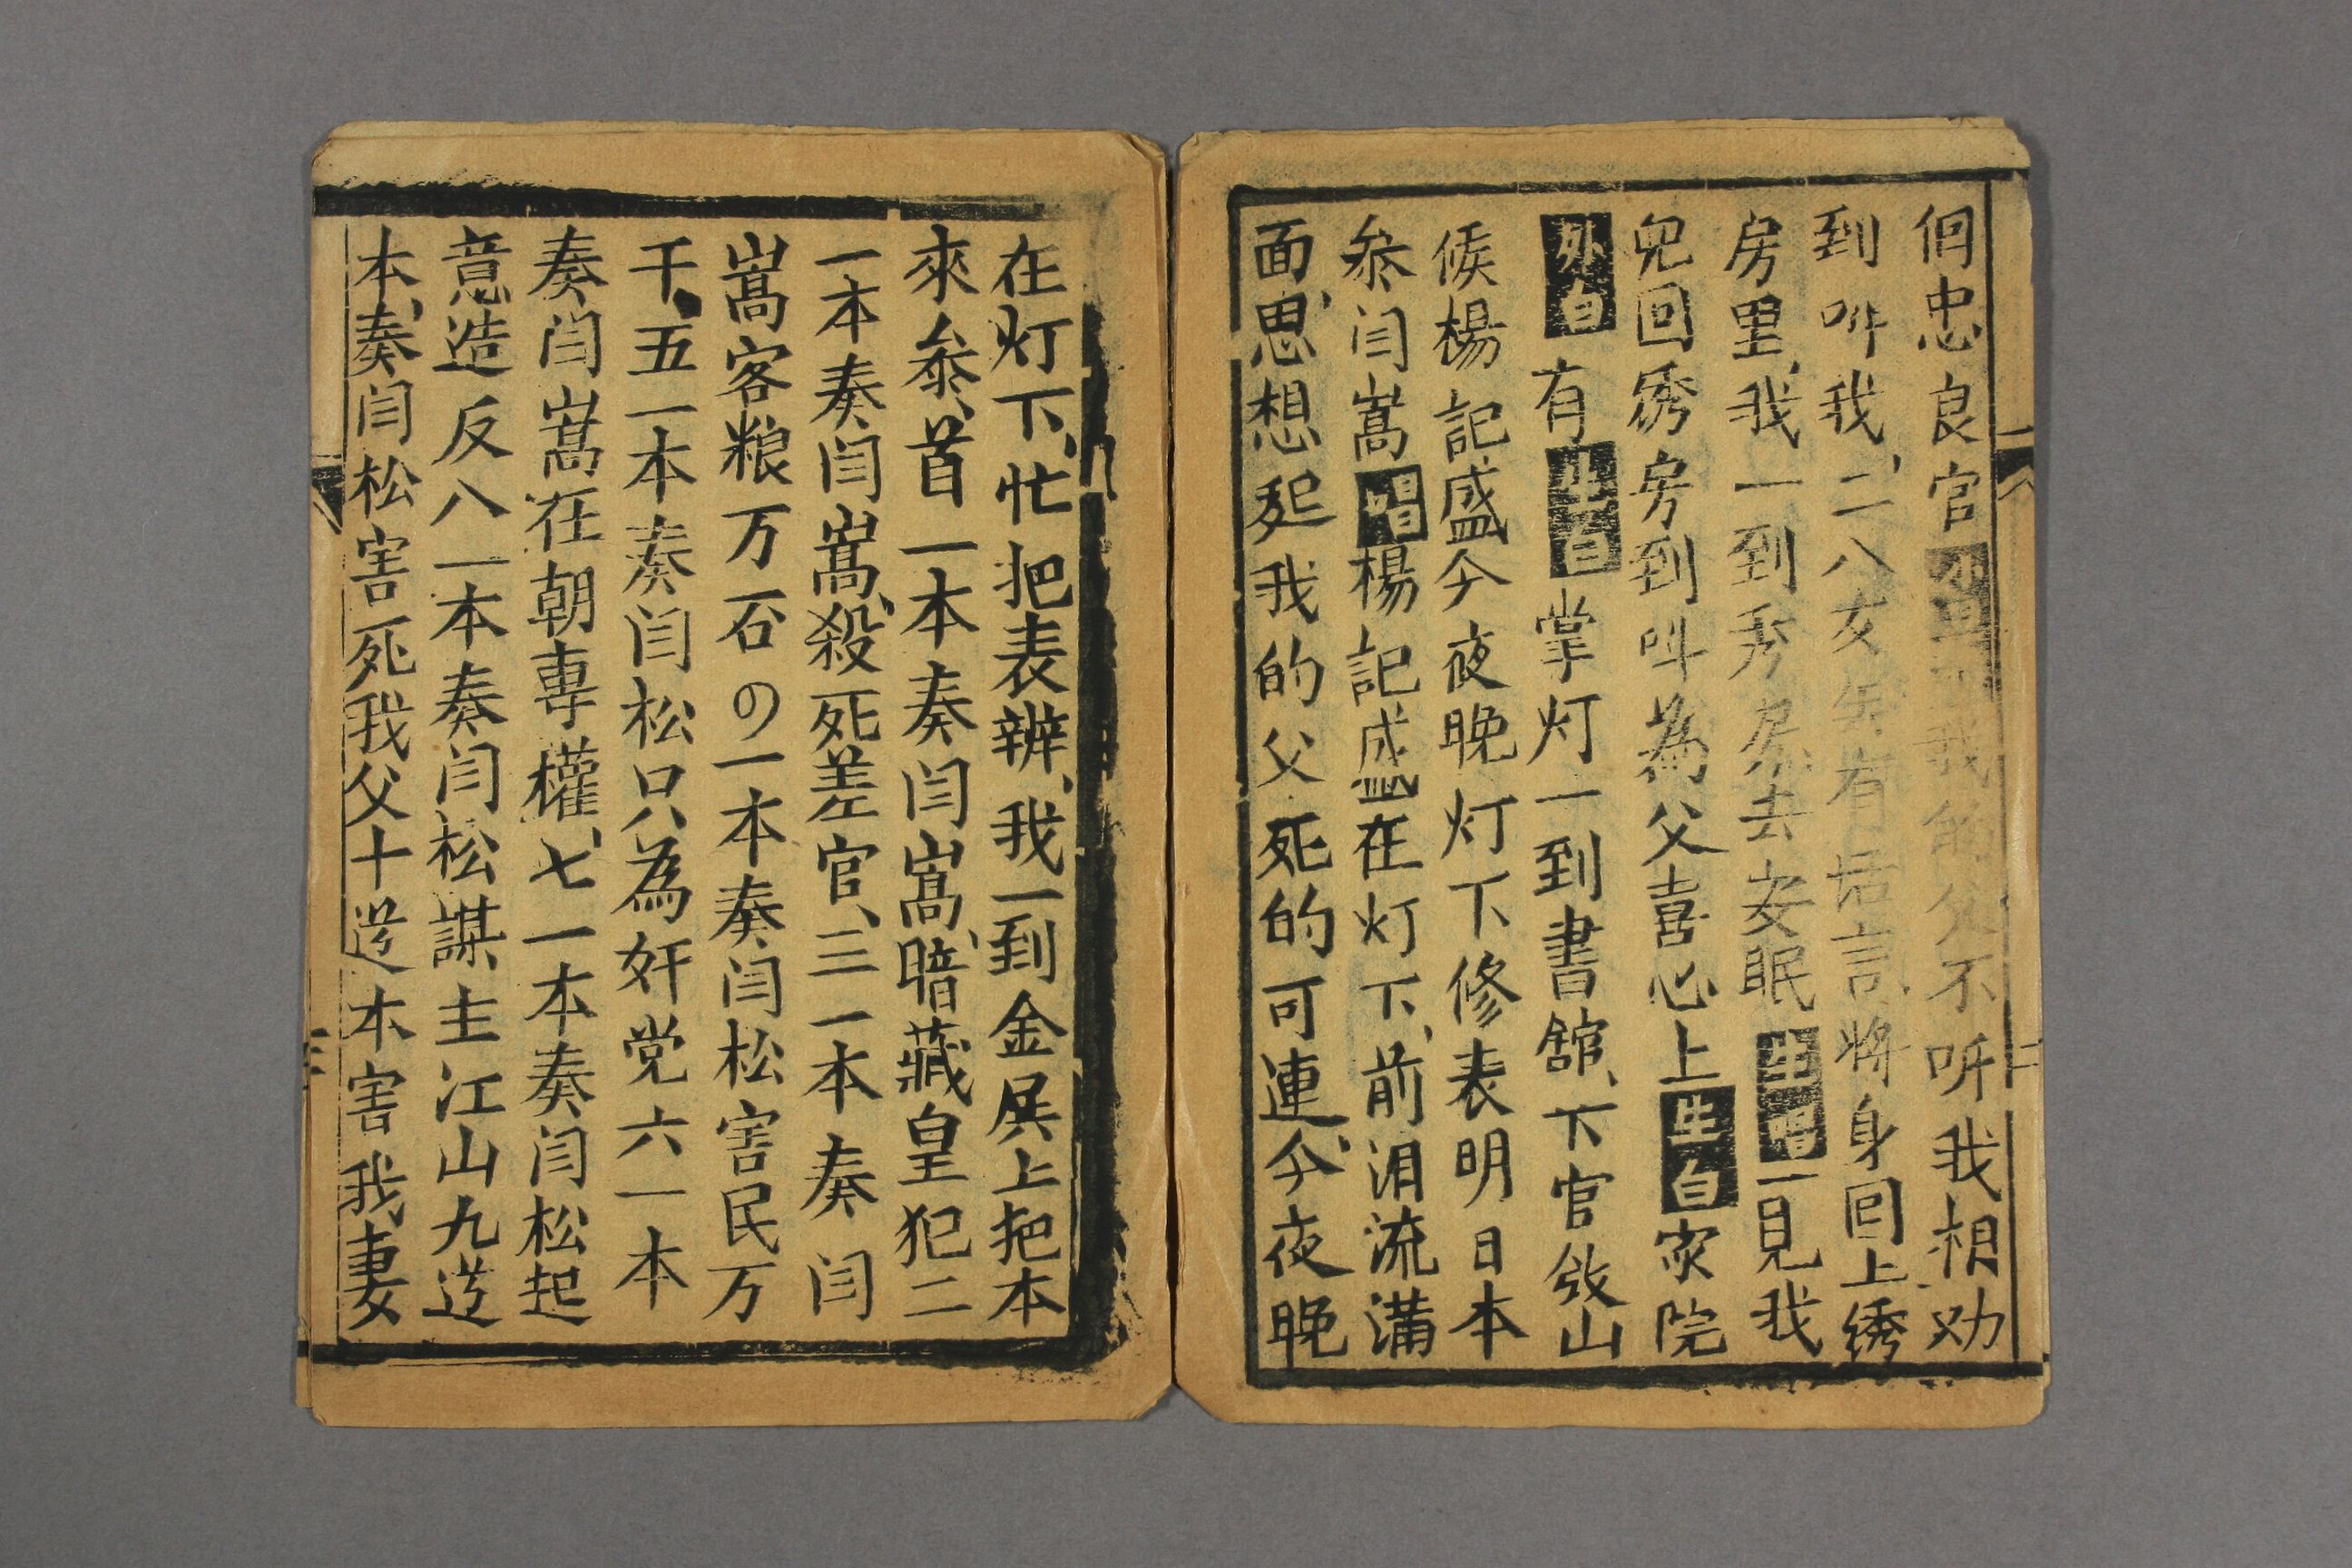 個忠良官我的父不听我相劝
到叫我、二八女無有話言将身回上綉
房里、我一到秀房去安眠生唱一見我
兒回綉房到叫為父喜心上生白家院
外白有生白掌灯一到書舘、下官
候楊記盛今夜晚灯下修表明日本
叅闫嵩唱楊記盛在灯下、前泪流满
面、思想起我的父死的可連、今夜晚
在灯下、忙把表辨、我一到金展上把本
來叅、首一本奏闫嵩、暗藏皇犯二
一本奏闫嵩、殺死差官、三一本奏闫
嵩客粮万石の一本奏闫松害民万
千、五一本奏闫松只為奸党六一本
奏闫嵩在朝專權、七一本奏闫松起
意造反八一本奏闫松謀主江山九道
本、奏闫松害死我父十道本害我妻